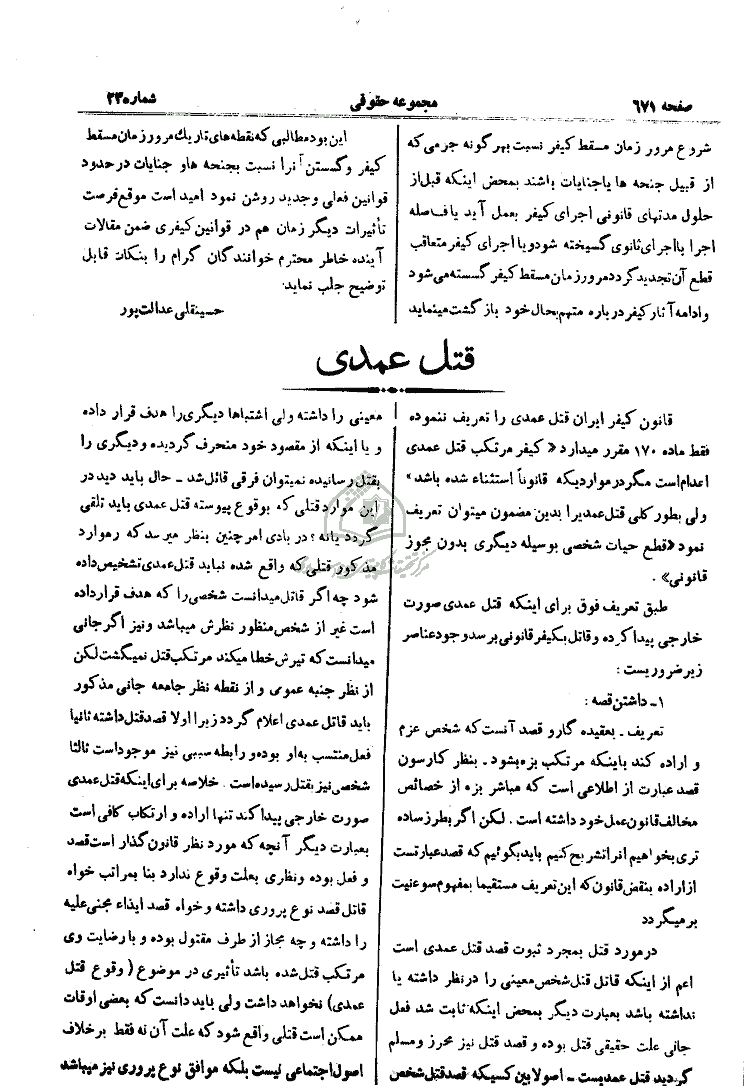 صفحه ۶۷۱
مجموعه حقوقی
شماره ۲۳
شروع مرور زمان مسقط کیفر نسبت بهر گونه جرمی که
از قبیل جنحه ها یاجنایات باشند بمحض اینکه قبل از
حلول مدتهای قانونی اجرای کیفر بعمل آید یا فاصله
اجرا با اجرای ثانوی گسیخته شود و یا اجرای کیفر متعاقب
قطع آن تجدید گردد مرور زمان مسقط کیفر گسسته می شود
و ادامه آثار کیفر درباره متهم بحال خود بازگشت مینماید
این بود مطالبی که نقطه های تاریك مرور زمان مسقط
کیفر و گسستن آنرا نسبت بجنحه ها و جنایات در حدود
قوانین فعلی و جدید روشن نمود امید است موقع فرصت
تأثیرات دیگر زمان هم در قوانین کیفری ضمن مقالات
آینده خاطر محترم خوانندگان گرام را بنکات قابل
توضیح جلب نماید.
حسینقلی عدالت پور
قتل عمدی
قانون کیفر ایران قتل عمدی را تعریف ننموده
فقط ماده ۱۷۰ مقرر میدارد « کیفر مرتکب قتل عمدی
اعدام است مگر در مواردیکه قانوناً استثناء شده باشد »
ولی بطور کلی قتل عمدیرا بدین مضمون میتوان تعریف
نمود « قطع حیات شخصی بوسیله دیگری بدون مجوز
قانونی » .
طبق تعریف فوق برای اینکه قتل عمدی صورت
خارجی پیدا کرده و قاتل بکیفر قانونی برسد وجود عناصر
زیر ضروریست :
۱ـ داشتن قصه :
تعریف ـ بعقیده گارو قصد آنست که شخص عزم
و اراده کند باینکه مرتکب بزه بشود ـ بنظر کارسون
قصد عبارت از اطلاعی است که مباشر بزه از خصائص
مخالف قانون عمل خود داشته است . لکن اگر بطرز ساده
تری بخواهیم آنرا تشریح کنیم باید بگوئیم که قصد عبارتست
از اراده بنقض قانون که این تعریف مستقیما بمفهوم سوءنیت
بر میگردد
در مورد قتل بمجرد ثبوت قصد قتل عمدی است
اعم از اینکه قاتل قتل شخص معینی را در نظر داشته یا
نداشته باشد بعبارت دیگر بمحض اینکه ثابت شد فعل
جانی علت حقیقی قتل بوده و قصد قتل نیز محرز و مسلم
گردید قتل عمدیست ـ اصولا بین کسیکه قصد قتل شخص
معینی را داشته ولی اشتباها دیگری را هدف قرار داده
و یا اینکه از مقصود خود منحرف گردیده و دیگری را
بقتل رسانیده نمیتوان فرقی قائل شد ـ حال باید دید در
این موارد قتلی که بوقوع پیوسته قتل عمدی باید تلقی
گردد یا نه ؟ در بادی امر چنین بنظر میرسد که در موارد
مذکور قتلی که واقع شده نباید قتل عمدی تشخیص داده
شود چه اگر قاتل میدانست شخصی را که هدف قرار داده
است غیر از شخص منظور نظرش میباشد و نیز اگر جانی
میدانست که تیرش خطا میکند مرتکب قتل نمیگشت لکن
از نظر جنبه عمومی و از نقطه نظر جامعه جانی مذکور
باید قاتل عمدی اعلام گردد زیرا اولا قصد قتل داشته ثانیا
فعل منتسب به او بوده و رابطه سببی نیز موجود است ثالثا
شخصی نیز بقتل رسیده است . خلاصه برای اینکه قتل عمدی
صورت خارجی پیدا کند تنها اراده و ارتکاب کافی است
بعبارت دیگر آنچه که مورد نظر قانون گذار است قصد
و فعل بوده و نظری بعلت وقوع ندارد بنا بمراتب خواه
قاتل قصد نوع پروری داشته و خواه قصد ایذاء مجنی علیه
را داشته و چه مجاز از طرف مقتول بوده و با رضایت وی
مرتکب قتل شده باشد تأثیری در موضوع ( وقوع قتل
عمدی ) نخواهد داشت ولی باید دانست که بعضی اوقات
ممکن است قتلی واقع شود که علت آن نه فقط بر خلاف
اصول اجتماعی نیست بلکه موافق نوع پروری نیز میباشد